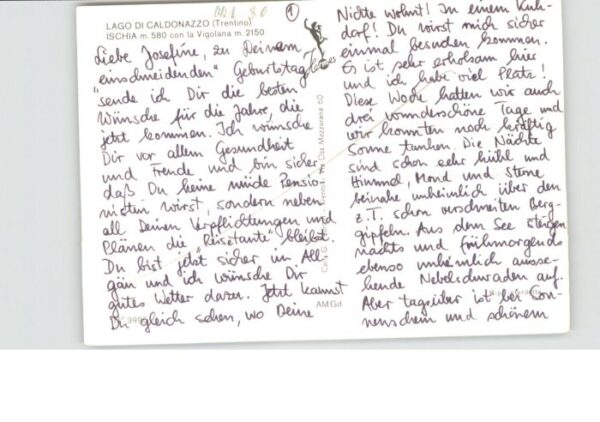 LAGO DI CALDONAZZO (Trentino)
ISCHIA m. 580 con la Vigolana m. 2150
1
Liebe Josefine, zu Deinem
"einschneidenden" Geburtstag
sende ich Dir die besten
Wünsche für die Jahre, die
jetzt kommen. Ich wünsche
Dir vor allem Gesundheit
und Freude und bin sicher,
daß Du keine müde Pensio-
nistin wirst, sondern neben
all Deinen Verpflichtungen und
Plänen die "Reisetante" bleibst.
Du bist jetzt sicher im All-
gäu und ich wünsche Dir
gutes Wetter dazu. Jetzt kannst
Du gleich sehen, wo Deine
AM Gd
Via Oss Mazzurana 60
Nichte wohnt! In einem Kuh-
dorf! Du wirst mich sicher
einmal besuchen kommen.
Es ist sehr erholsam hier
und ich habe viel Platz!
Diese Woche hatten wir auch
drei wunderschöne Tage und
wir konnten noch kräftig
Sonne tanken. Die Nächte
sind schon sehr kühl und
Himmel, Mond und Sterne
beinahe unheimlich über den
z.T. schon verschneiten Berg-
gipfeln. Aus dem See steigen
nachts und frühmorgends
ebenso unheimlich ausse-
hende Nebelschwaden auf.
Aber tagsüber ist bei Son-
nenschein und schönem